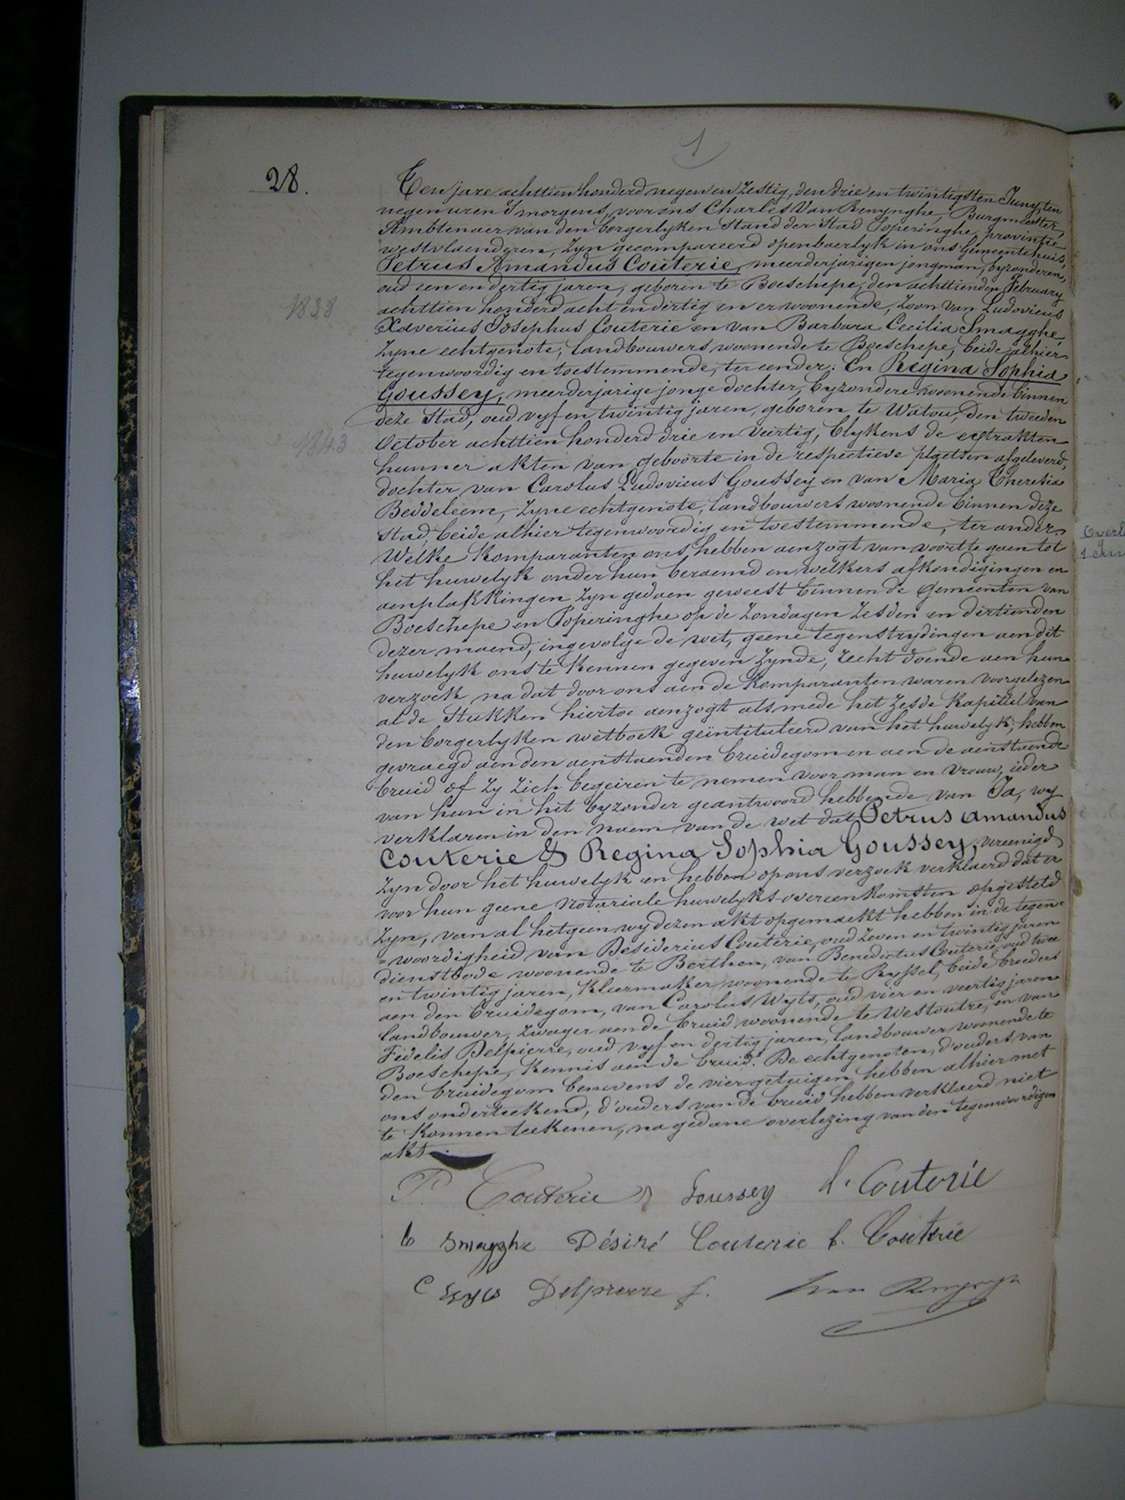 1
28.
Ten jare achttien honderd negen en zestig, den drie en twintigsten Juny, ten
negen uren 's morgens, voor ons Charles Van Renynghe, Burgmeester,
Ambtenaer van den borgerlyken Stand der Stad Poperinghe, provintie
westvlaenderen, zyn gecompareerd openbaerlyk in ons Gemeentehuis
Petrus Amandus Couterie, meerderjarigen jongman, byzonderen,
oud een en dertig jaren, geboren te Boeschepe, den achttienden February
achttien honderd acht en dertig en er woonende, Zoon van Ludovicus
1838
Xaverius Josephus Couterie en van Barbara Cecilia Smagghe,
zyne echtgenote, landbouwers woonende te Boeschepe, beide alhier
tegenwoordig en toestemmende, ter eender; En Regina Sophia
Goussey, meerderjarige jonge dochter, byzondere woonende binnen
deze Stad, oud vyf en twintig jaren, geboren te Watou, den tweeden
October achttien honderd drie en veertig, blykens de extrakten
1843
hunner akten van geboorte in de respectieve plaetsen afgeleverd,
dochter van Carolus Ludovicus Goussey en van Maria Theresia
Beddeleem, zyne echtgenote, landbouwers woonende binnen deze
Stad, beide alhier tegenwoordig en toestemmende, ter ander.
Welke komparanten ons hebben aenzogt van voort te gaen tot
het huwelyk onder hun beraemd en welkers afkondigingen en
aenplakkingen zyn gedaen geweest binnen de gemeenten van
Boeschepe en Poperinghe op de Zondagen Zesden en dertienden
dezer maend, ingevolge de wet, geene tegenstrydingen aen dit
huwelyk ons te kennen gegeven zynde, recht doende aen hun
verzoek na dat door ons aen de komparanten waren voorgelezen
al de Stukken hiertoe aenzogt als mede het Zesde kapittel van
den borgerlyken wetboek geïntituleerd van het huwelyk, hebben
gevraegd aen den aenstaenden bruidegom en aen de aenstaende
bruid of zy zich begeiren te nemen voor man en vrouw, ieder
van hun in het byzonder geantwoord hebbende van Ja, wy
verklaren in den naem van de wet dat Petrus Amandus
Couterie & Regina Sophia Goussey, vereenigd
zyn door het huwelyk en hebben op ons verzoek verklaerd dat er
voor hun geene Notariale huwelyks overeenkomsten opgesteld
zyn, van al hetgeen wy dezen akt opgemaekt hebben in de tegen-
woordigheid van Desiderius Couterie, oud zeven en twintig jaren
dienstbode woonende te Berthen, van Benedictus Couterie, oud twee
en twintig jaren, kleermaker, woonende te Ryssel, beide broeders
aen den bruidegom, van Carolus Wyts, oud vier en veertig jaren
landbouwer, Zwager aen de bruid, woonende te Westoutre, en van
Fidelis Delpierre, oud vyf en dertig jaren, landbouwer woonende te
Boeschepe, kennis aen de bruid. De echtgenoten, d'ouders van
den bruidegom benevens de vier getuigen hebben alhier met
ons onderteekend, d'ouders van de bruid hebben verklaerd niet
te konnen teekenen, na gedane overlezing van den tegenwoordigen
akt
P Couterie r Goussey l. Couterie
b Smagghe Désiré Couterie b. Couterie
C Wyts Delpierre f. Van Renynghe